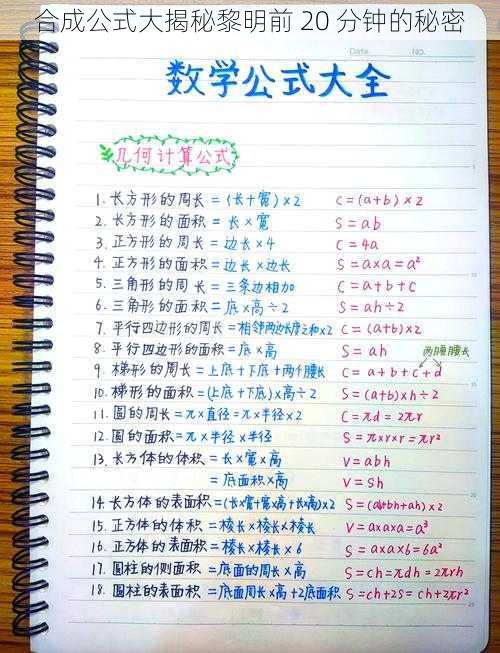 合成公式大揭秘黎明前 20 分钟的秘密
Date. NO.
数学公式大全
几何计算公式
1. 长方形的周长 = (长+宽)×2 C = (a+b)×2
2. 长方形的面积 = 长×宽 S = ab
3. 正方形的周长 = 边长×4 C = 4a
4. 正方形的面积 = 边长×边长 S = a×a = a²
5. 三角形的周长 = 三条边相加 C = a+b+c
6. 三角形的面积 = 底×高÷2 S = ah÷2
7. 平行四边形的周长 = 相邻两边长度之和×2 C = (a+b)×2
8. 平行四边形的面积 = 底×高 S = ah 两腰腰长
9. 梯形的周长 = 上底+下底+两个腰长 C = a+b+c+d
10. 梯形的面积 = (上底+下底)×高÷2 S = (a+b)×h÷2
11. 圆的周长 = π×直径 = π×半径×2 C = πd = 2πr
12. 圆的面积 = π×半径×半径 S = π×r×r = πr²
13. 长方体的体积 = 长×宽×高 V = abh
= 底面积×高 V = Sh
14. 长方体的表面积 = (长×宽+宽×高+长×高)×2 S = (ab+bh+ah)×2
15. 正方体的体积 = 棱长×棱长×棱长 V = a×a×a = a³
16. 正方体的表面积 = 棱长×棱长×6 S = a×a×6 = 6a²
17. 圆柱的侧面积 = 底面的周长×高 S = ch = πdh = 2πrh
18. 圆柱的表面积 = 底面周长×高+2底面积 S = ch+2S = ch+2πr²